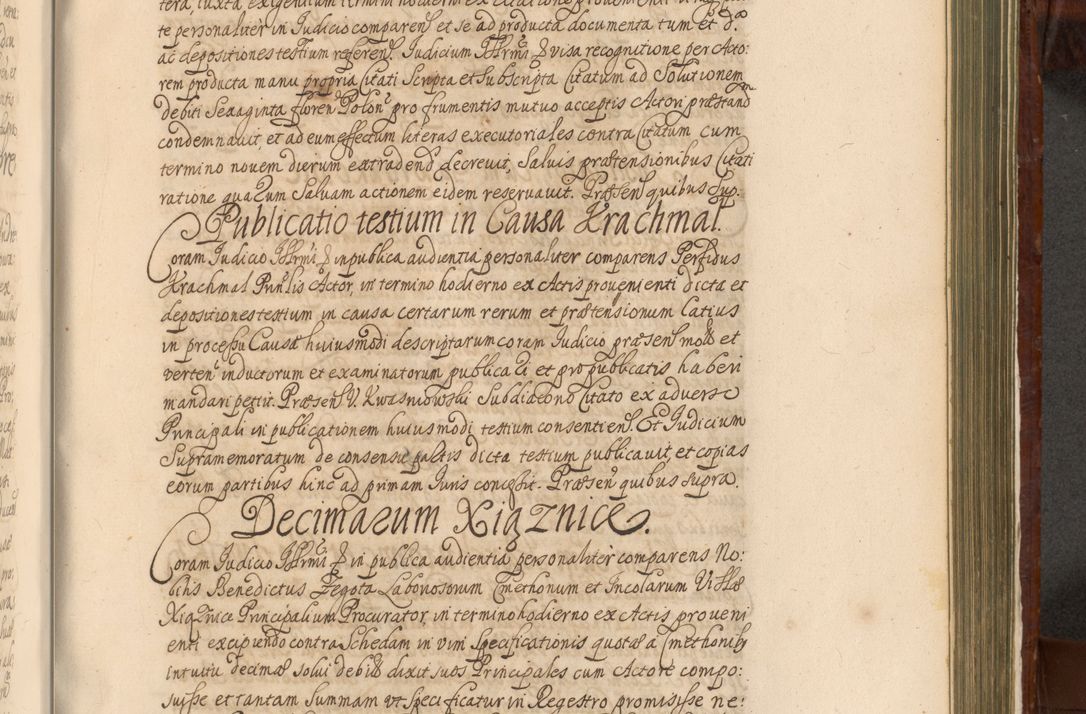 te personaliter in Judicio comparen. et se ad producta documenta tum et
ac depositiones testium referen. Judicium visa recognitione per Acto:
rem producta manu propria Citati Scripta et Subscripta Citatum ad Solutionem
debiti Sexaginta floren. Polon. pro frumentis mutuo acceptis Actori præstand
condemnavit, et ad eum effectum literas executoriales contra Citatum cum
termino novem dierum extradend. decrevit, Salvis prætensionibus Citati
ratione quarum Salvam actionem eidem reservavit. Præsen. quibus Sup.
Publicatio testium in Causa Krachmal.
Coram Judicio in publica audientia personaliter comparens Perfidus
Krachmal Actor, in termino hodierno ex Actis provenienti dicta et
depositiones testium in causa certarum rerum et prætensionum latius
in processu Causæ huiusmodi descriptarum coram Judicio præsen. et
verten. inductorum et examinatorum publicari et pro publicatis haberi
mandari petiit. Præsen. V. Kwasniowski Subdiacono Citato ex adverso
Principali in publicationem huiusmodi testium consentien. Et Judicium
Supramemoratum de consensu partis dicta testium publicavit, et copias
eorum partibus hinc ad primam Juris concessit. Præsen. quibus supra.
Decimarum Xiąznice.
Coram Judicio in publica audientia personaliter comparens No:
bilis Benedictus Zegota Laboriosorum Cmethonum et Incolarum Villæ
Xiąznice Principalium Procurator, in termino hodierno ex Actis proveni
enti excipiendo contra Schedam in vim Specificationis quotæ a Cmethonibus
intuitu decimæ solvi debitæ dixit suos Principales cum Actore compo:
suisse et tantam Summam ut Specificatur in Regestro promisisse ne: